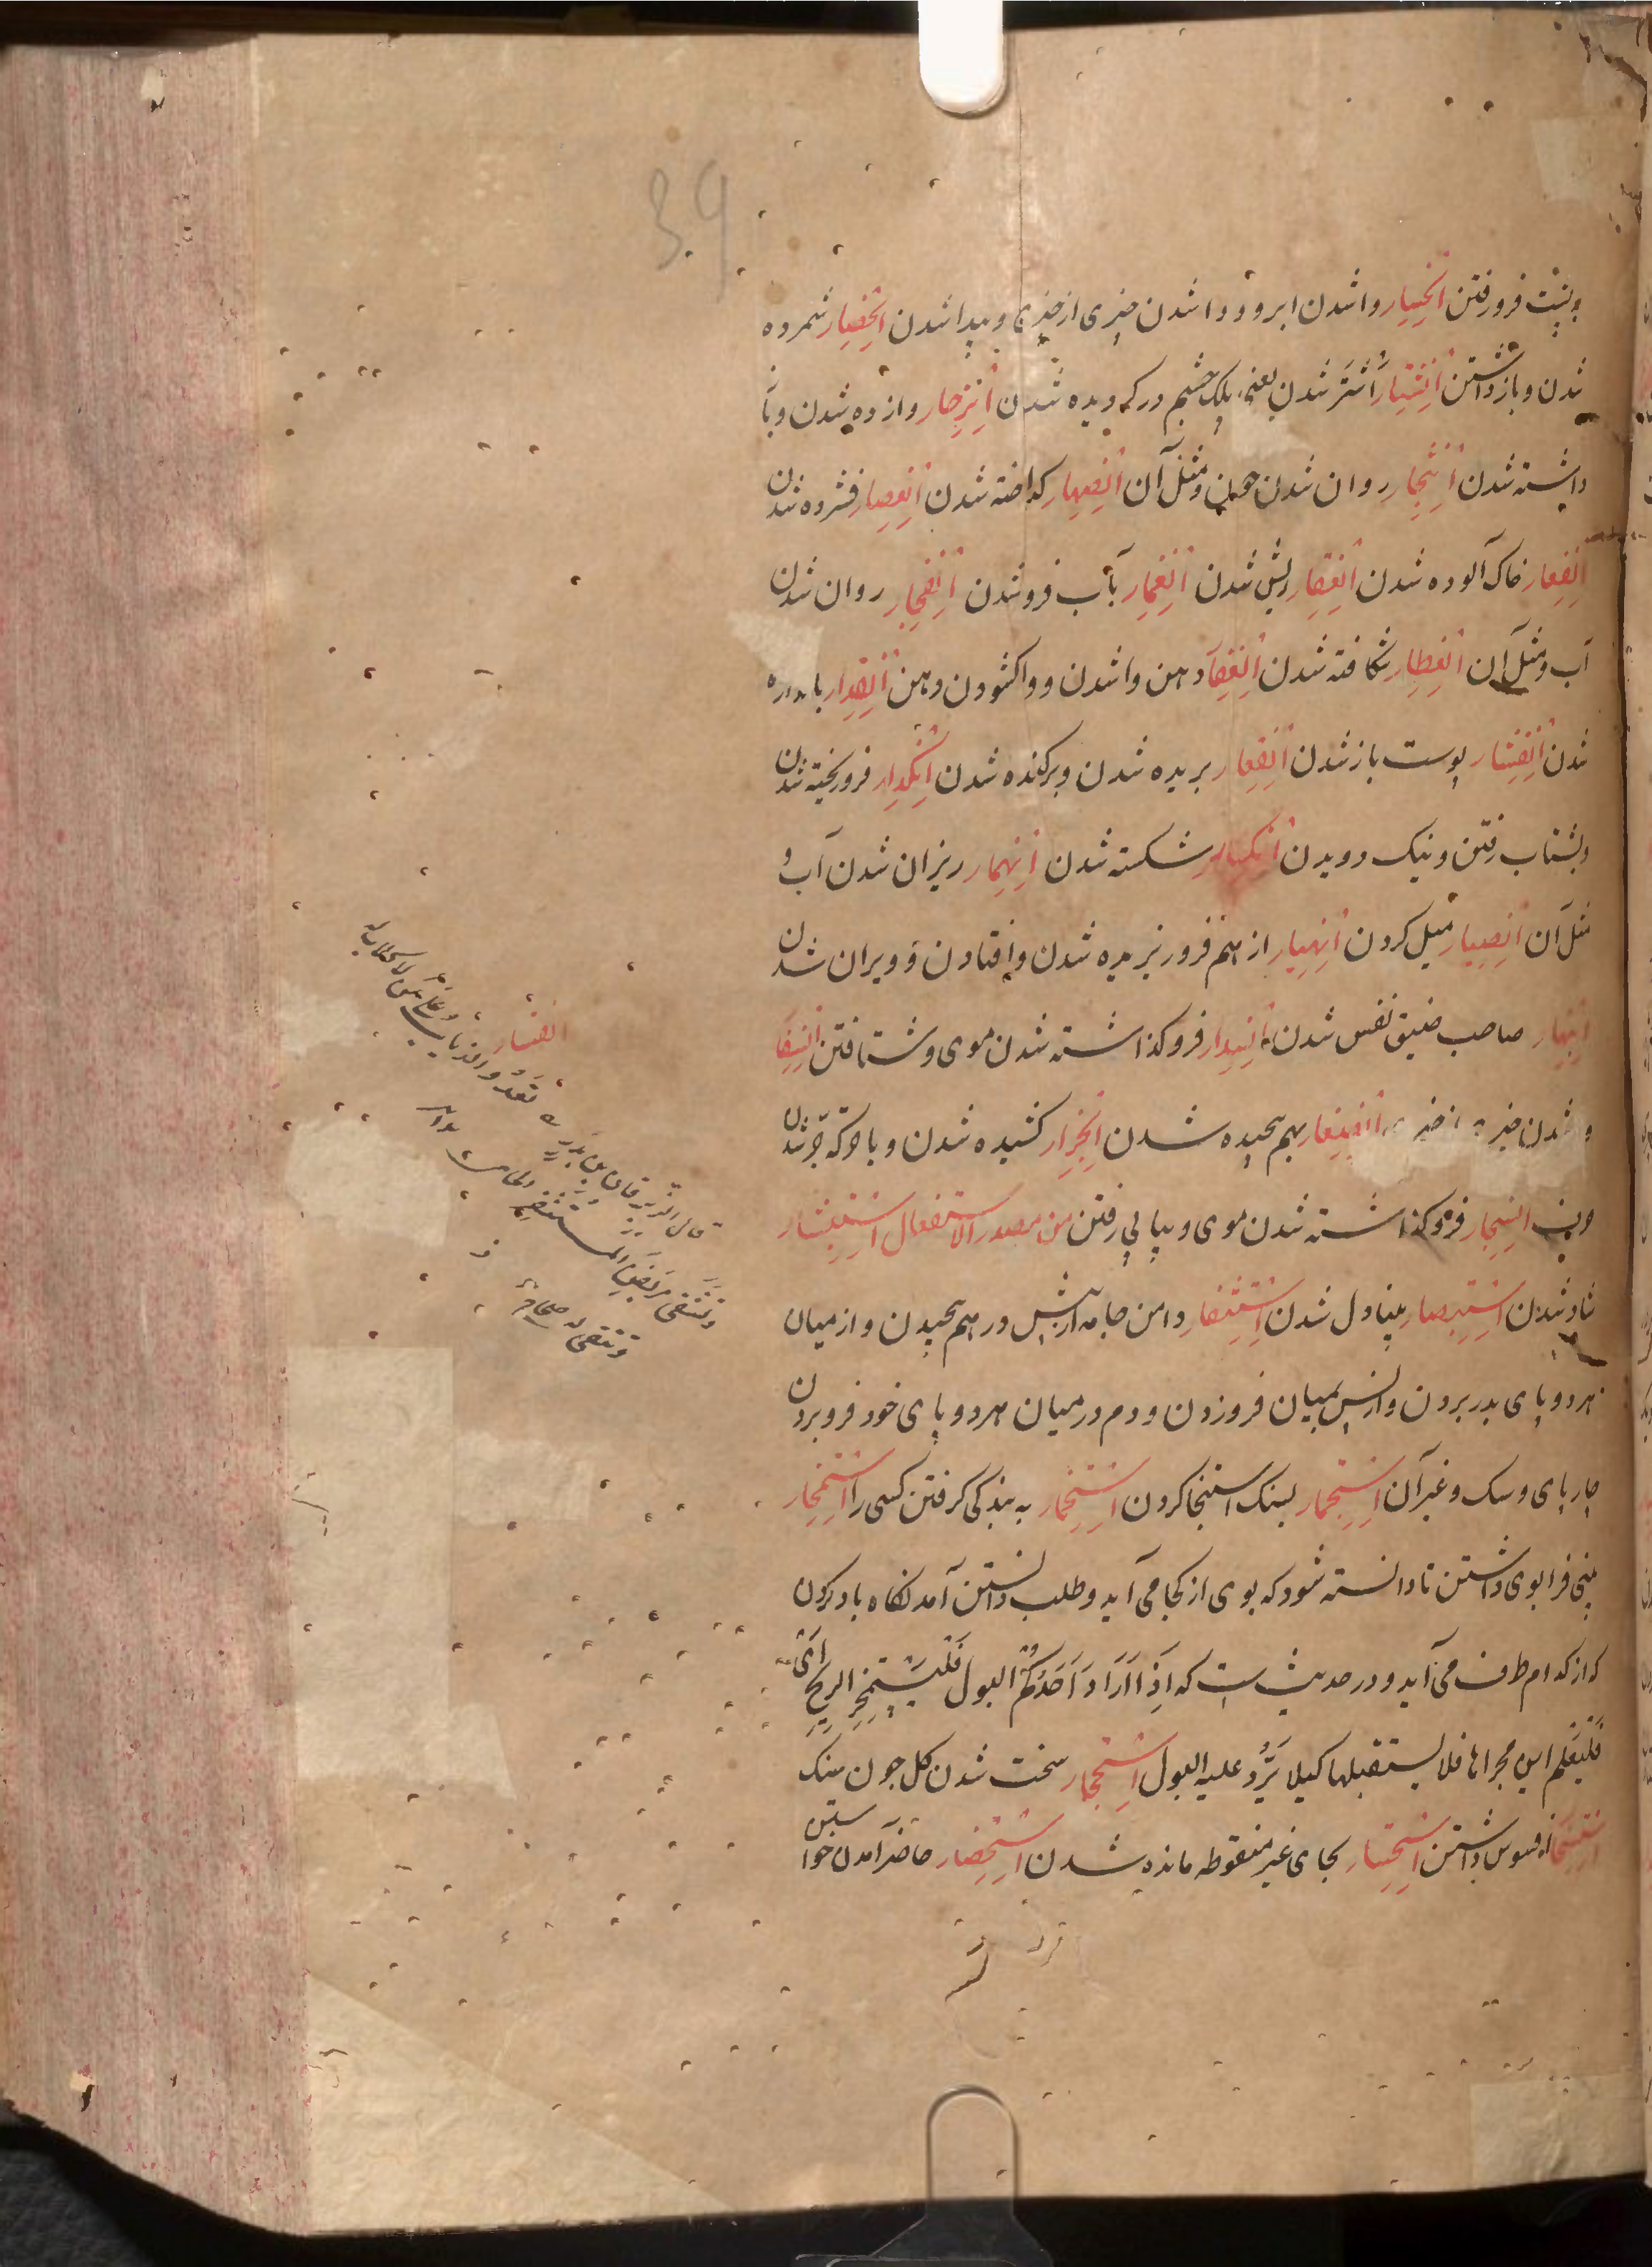 39
و پست فرو رفتن انحسار وا شدن ابر و وا شدن چیزی از چیزی و پیدا شدن انحصار شمرده
شدن و باز داشتن انشتار اشتر شدن یعنی پلک چشم در کردیده شدن انزجار وازده شدن و با
داشته شدن انثجار روان شدن خون و مثل آن انصهار کداخته شدن انعصار فشرده شدن
انعفار خاک آلوده شدن انعقار ریش شدن انغمار بآب فرو شدن انفجار روان شدن
آب و مثل آن انفطار شکافته شدن انفغار دهن وا شدن و واکشودن دهن انقدار باندازه
شدن انقشار پوست باز شدن انقعار بریده شدن و برکنده شدن انکدار فرو ریخته شدن
و بشتاب رفتن و نیک دویدن انکسار شکسته شدن انهمار ریزان شدن آب و
مثل آن انصیار میل کردن انهیار از هم فرو ریزیده شدن و افتادن و ویران شدن
انبهار صاحب ضیق نفس شدن انسدار فرو کذاشته شدن موی و شتافتن انسفار
وا شدن بهم پیچیده شدن انجرار کشیده شدن و با حرکة جر شدن
انسجار فرو کذاشته شدن موی و پیاپی رفتن من مصدر الاستفعال استبشار
شاد شدن استبصار بینا دل شدن استثفار دامن جامه از پیش در هم پیچیدن و از میان
هر دو پای بدر بردن و از پس بمیان فرو زدن و دم در میان هر دو پای خود فرو بردن
چارپای و سک و غیر آن استجمار بسنک استنجا کردن استخمار به بندکی کرفتن کسی را استمخار
بینی فرا بوی داشتن تا دانسته شود که بوی از کجا می آید و طلب دانستن آمدنکاه باد کردن
که از کدام طرف می آید و در حدیث است که اذا اراد احدکم البول فلیستمخر الریح ای
فلیعلم این مجراها فلا یستقبلها کیلا یرد علیه البول استحجار سخت شدن کل چون سنک
استسخار افسوس داشتن استحسار بجای غیر منقوطه مانده شدن استحضار حاضر آمدن خواستن
قال الزبرقان بن بدر
تعدو الذئاب علی من لا کلاب له
و تتقی مربض المستثفر الحامی